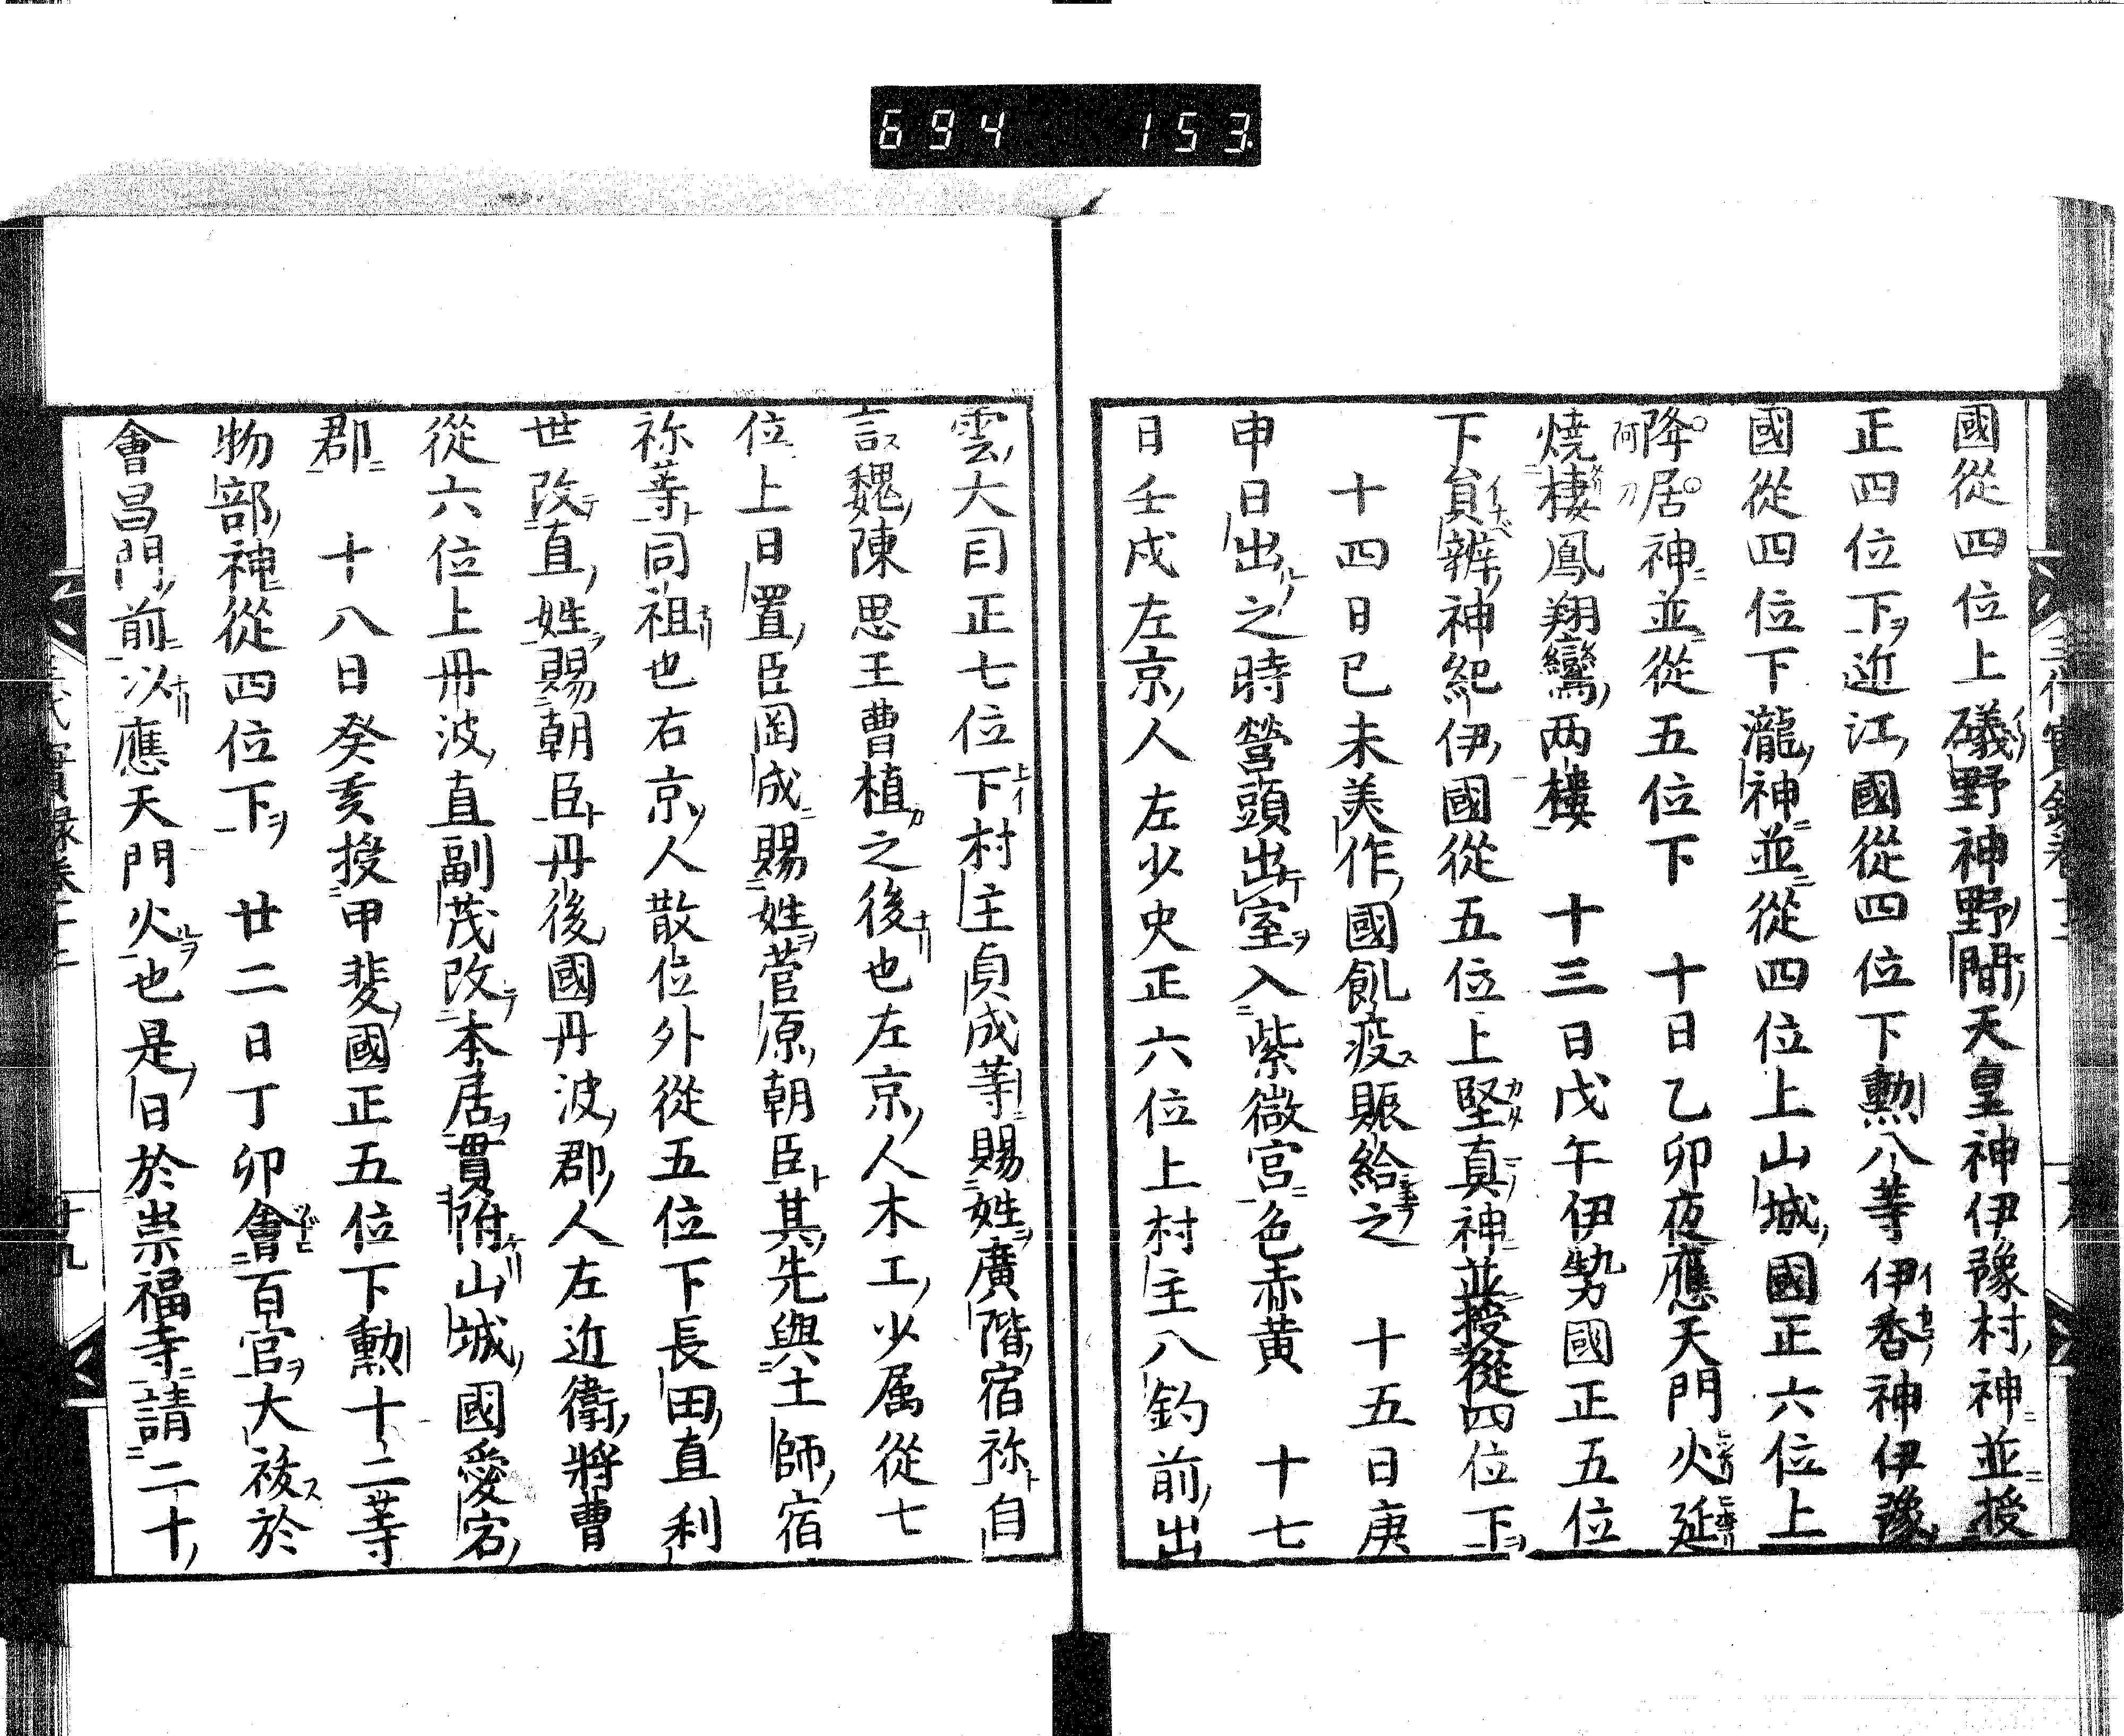 694 153
國從四位上礒野神野間天皇神伊豫村神並授
正四位下近江國從四位下勲八等伊香神伊豫
國從四位下瀧神並從四位上山城國正六位上
降居神並從五位下 十日乙卯夜應天門火延
燒棲鳳翔鸞两樓 十三日戊午伊勢國正五位
下員辨神紀伊國從五位上堅真神並授從四位下
十四日已未美作國飢疫賑給之 十五日庚
申日出之時營頭出室入紫微宮色赤黄 十七
日壬戌左京人左少史正六位上村主八釣前出
雲大目正七位下村主貞成等賜姓廣階宿祢自
言魏陳思王曹植之後也左京人木工少属從七
位上日置臣岡成賜姓菅原朝臣其先與土師宿
祢等同祖也右京人散位外從五位下長田直利
世改直姓賜朝臣丹後國丹波郡人左近衛將曹
從六位上丹波直副茂改本居貫附山城國愛宕
郡 十八日癸亥授甲斐國正五位下勲十二等
物部神從四位下 廿二日丁卯會百官大祓於
會昌門前以應天門火也是日於崇福寺請二十